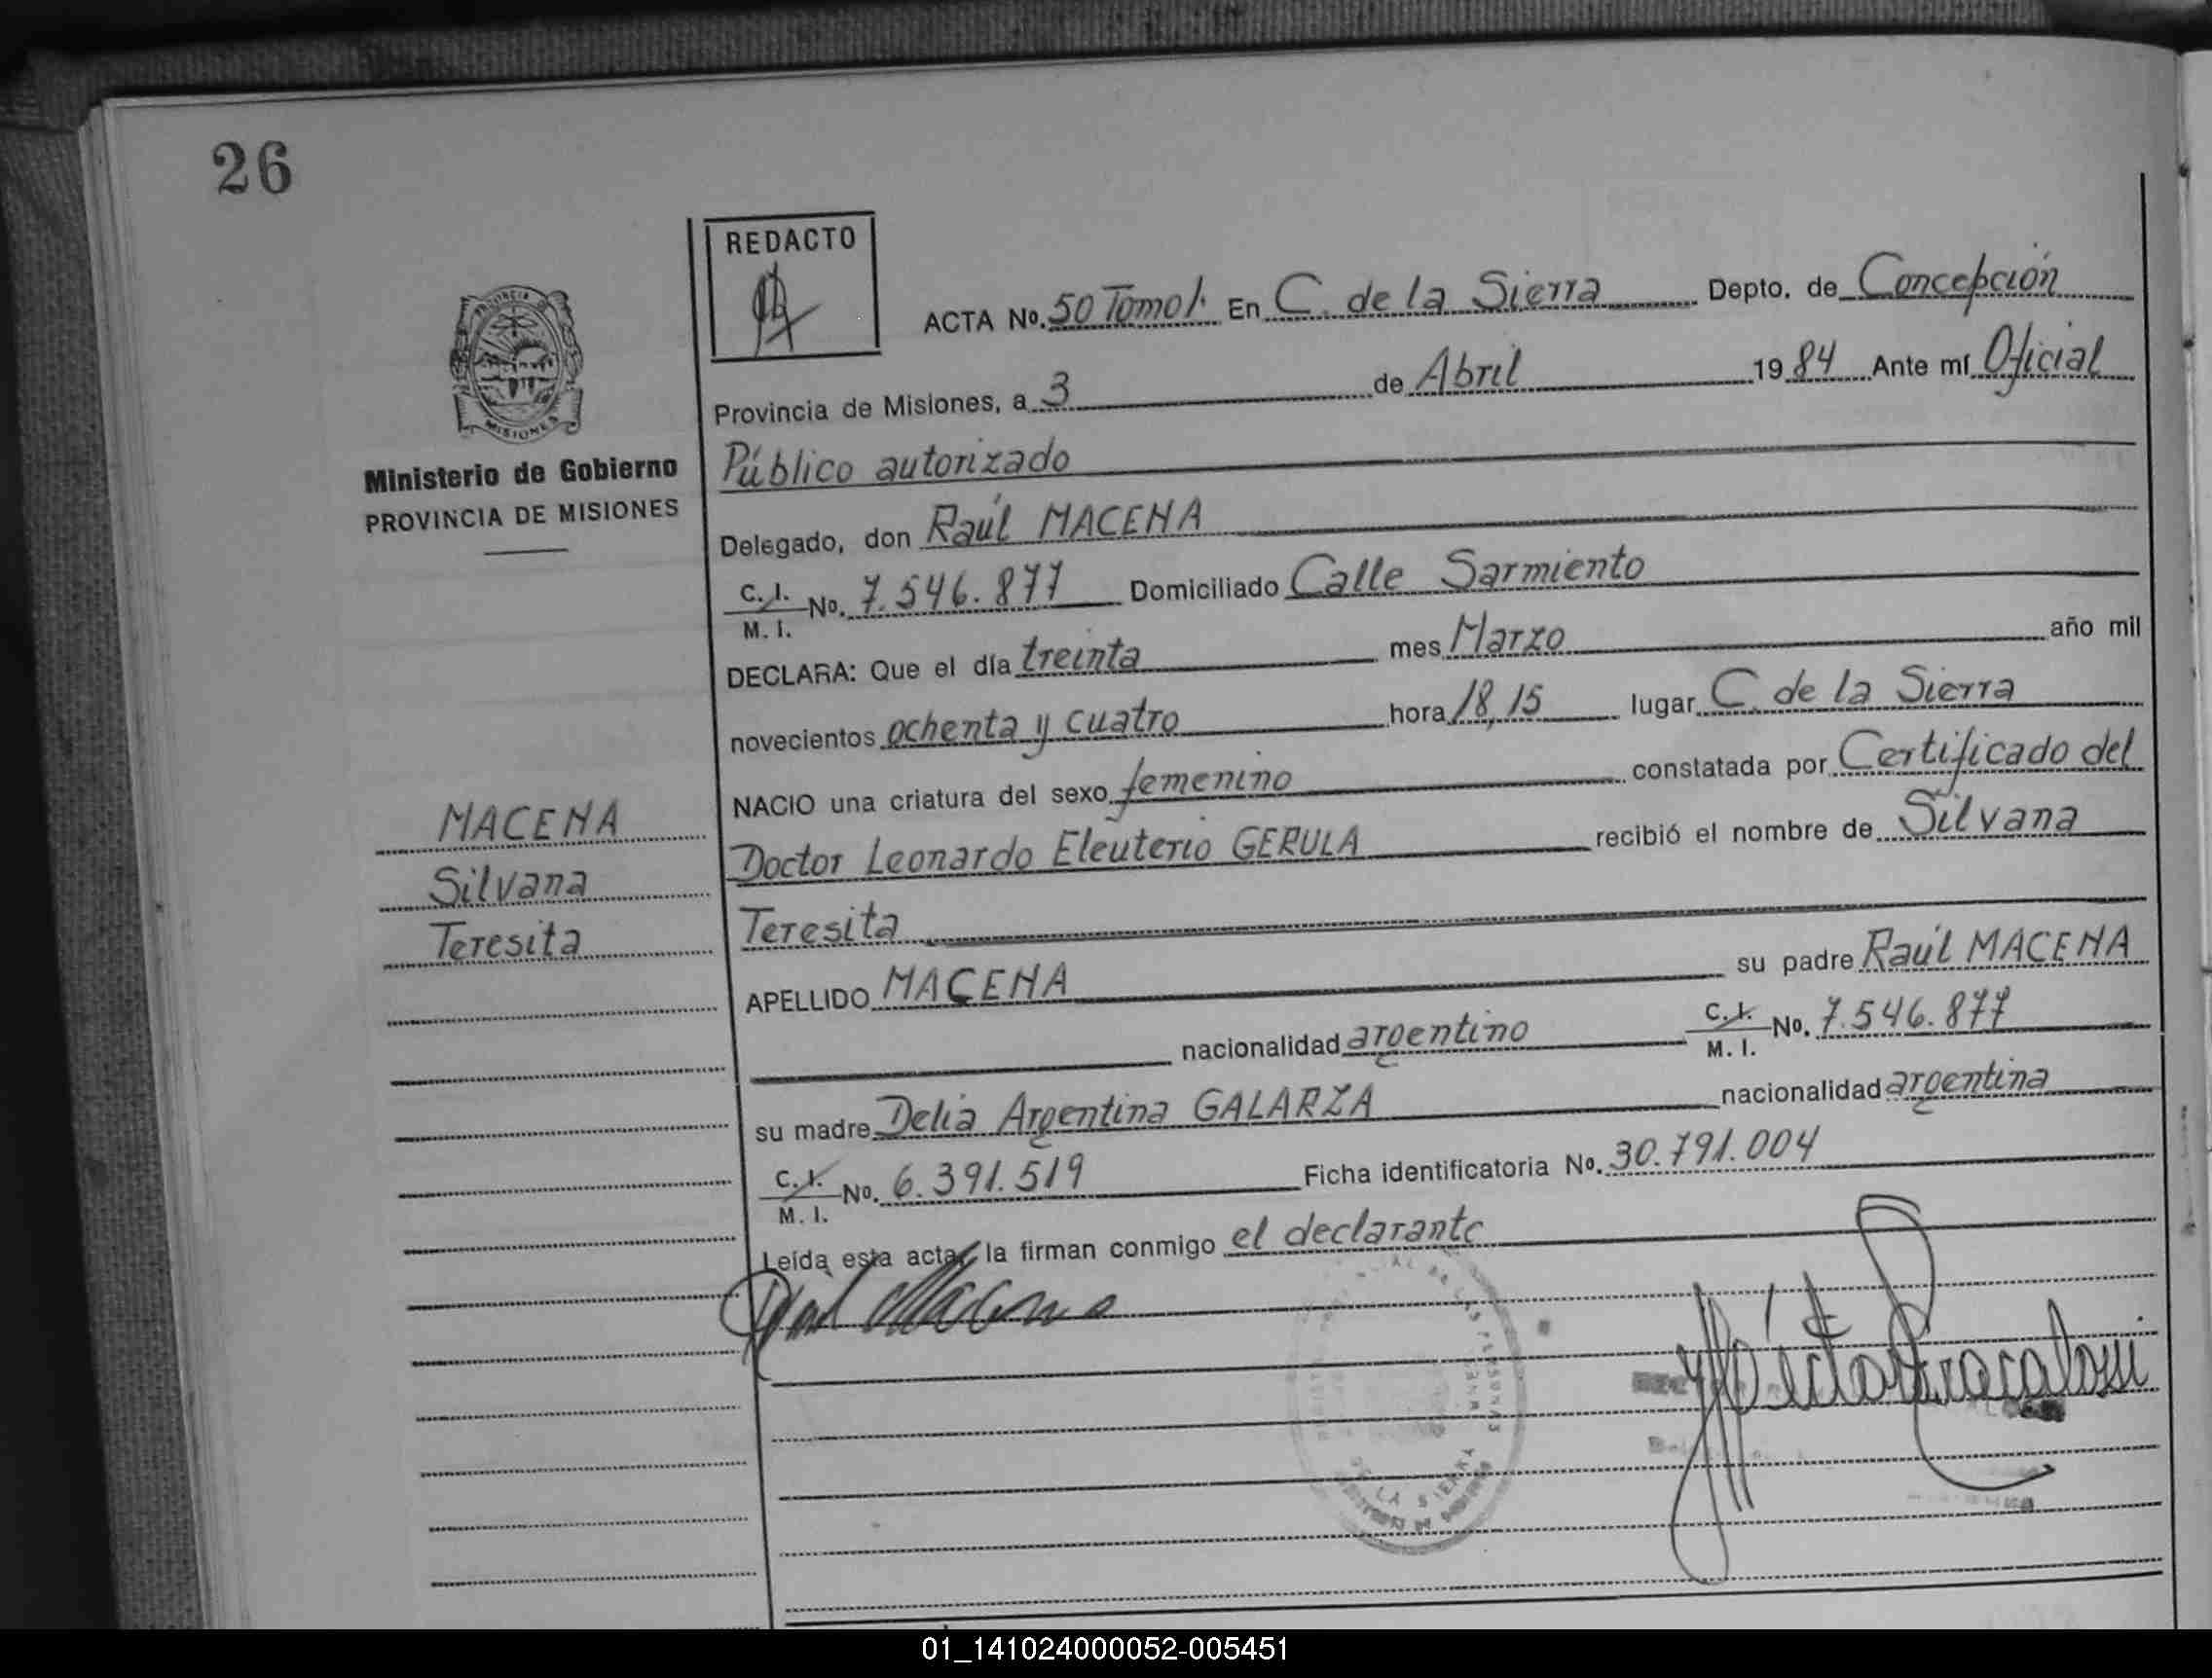 26
REDACTO
ACTA No. 50 Tomo I. En C. de la Sierra Depto. de Concepción
Provincia de Misiones, a 3 de Abril 1984 Ante mí Oficial
Público autorizado
MISIONES
Ministerio de Gobierno
PROVINCIA DE MISIONES
Delegado, don Raúl MACENA
C. I. M. I. No. 7.546.877 Domiciliado Calle Sarmiento
DECLARA: Que el día treinta mes Marzo año mil
novecientos ochenta y cuatro hora 18,15 lugar C. de la Sierra
NACIO una criatura del sexo femenino constatada por Certificado del
Doctor Leonardo Eleuterio GERULA recibió el nombre de Silvana
Teresita
MACENA
Silvana
Teresita
APELLIDO MACENA su padre Raúl MACENA
nacionalidad argentino C. I. M. I. No. 7.546.877
su madre Delia Argentina GALARZA nacionalidad argentina
C. I. M. I. No. 6.391.519 Ficha identificatoria No. 30.791.004
Leída esta acta, la firman conmigo el declarante
Raul Macena
DE LAS PERSONAS
DE LA SIERRA
01_141024000052-005451